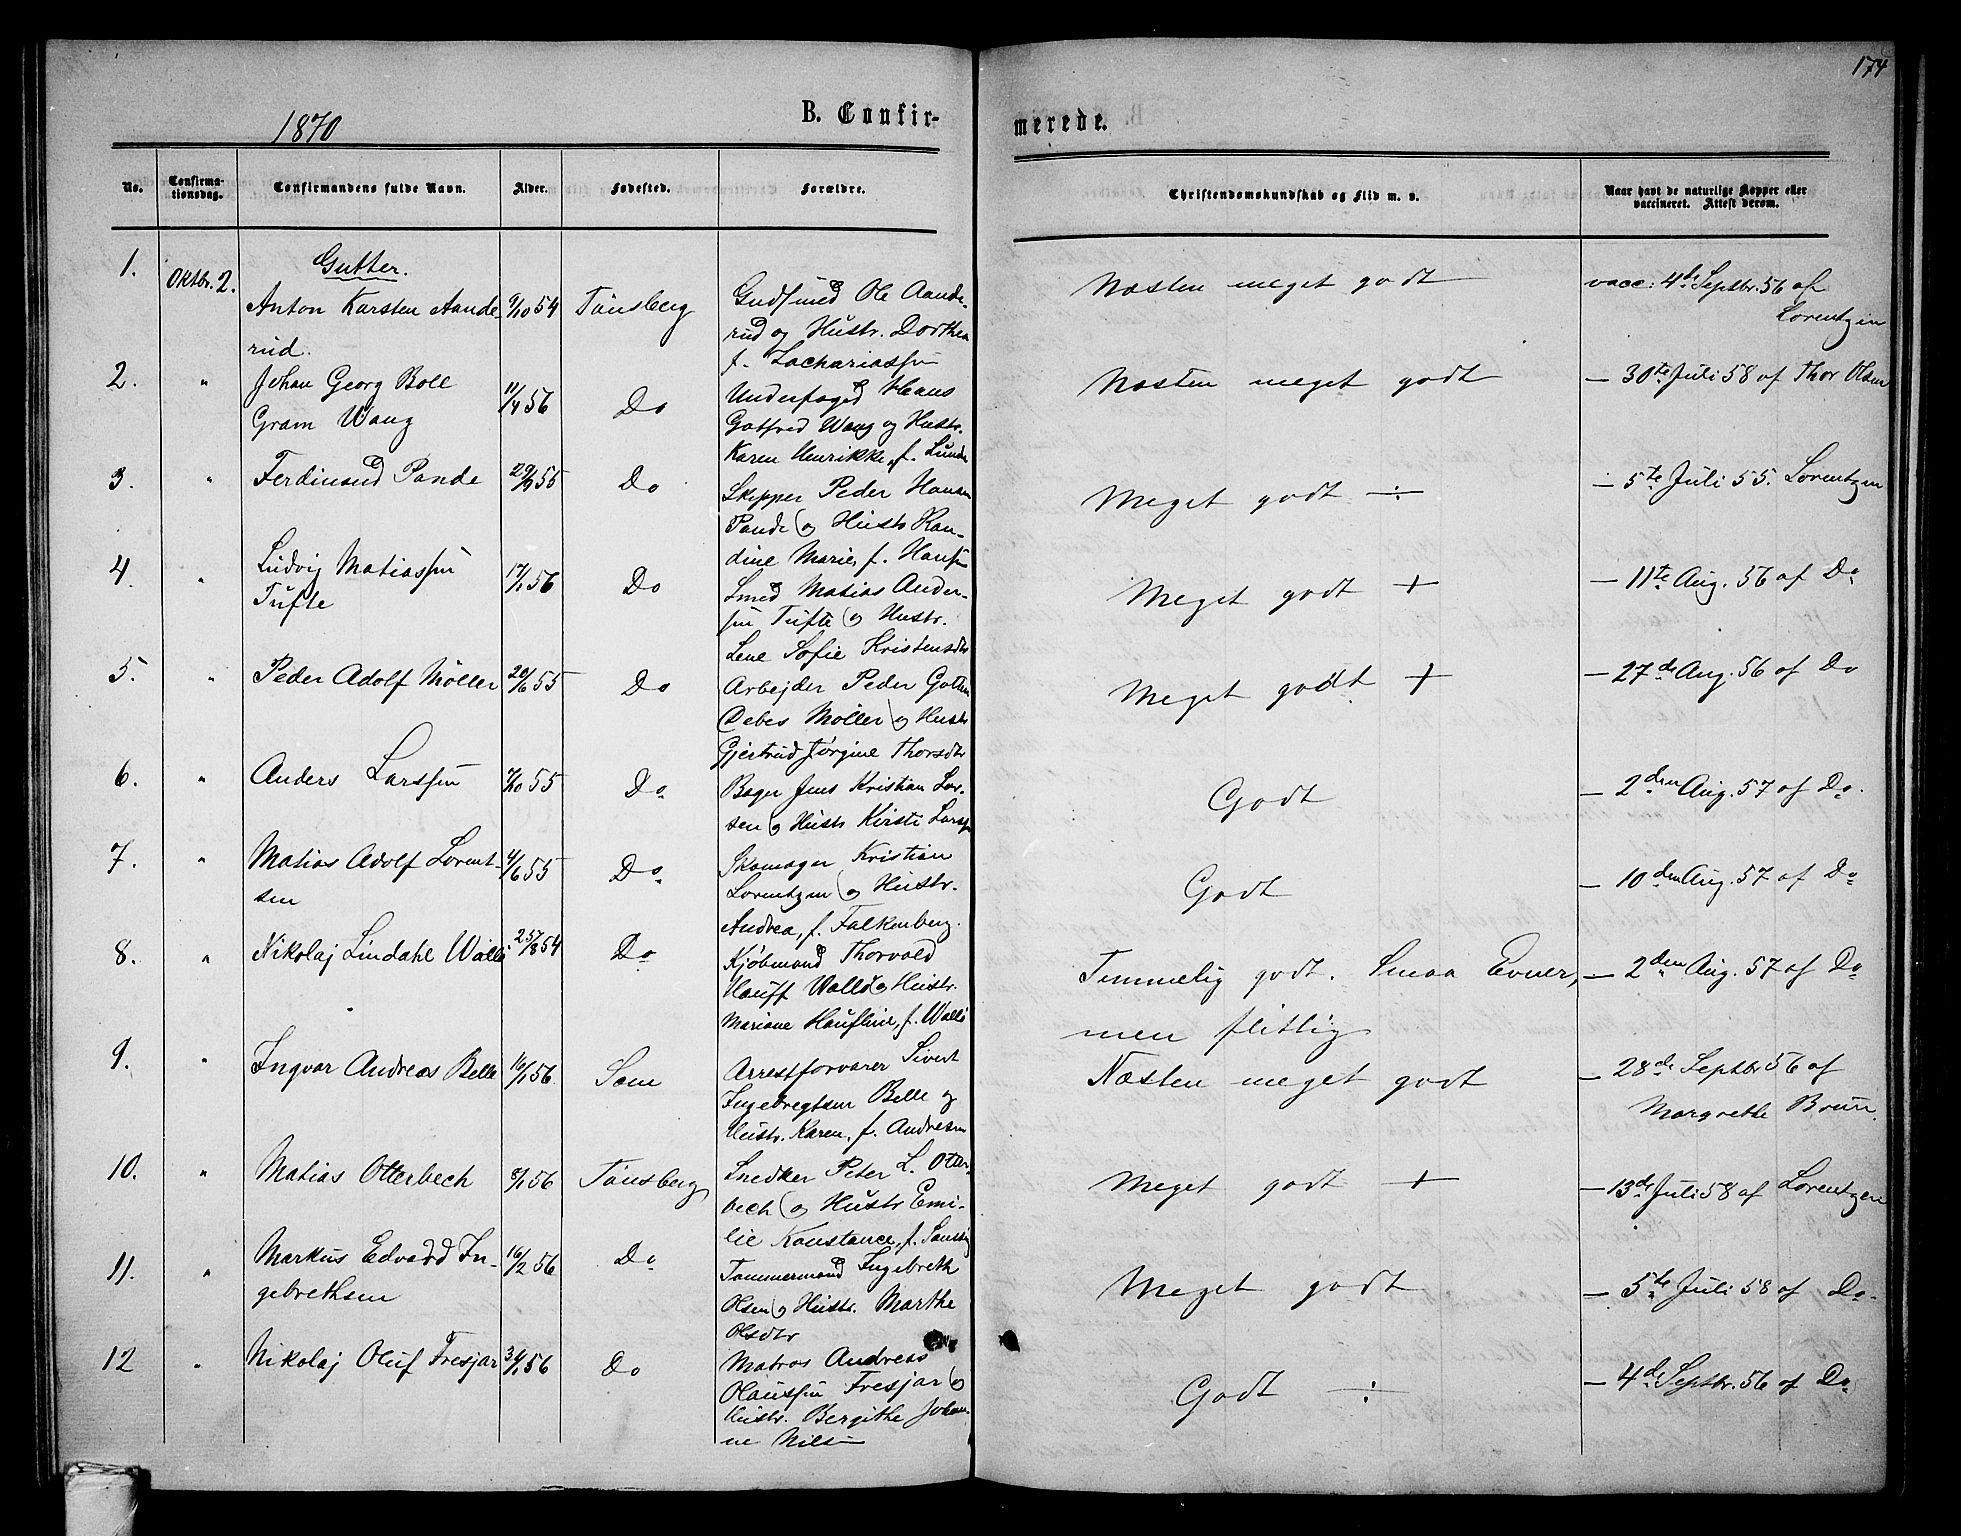 174
1870
B. Confir-
merede.
No.
Confirma-
tionsdag.
Confirmandens fulde Navn.
Alder.
Fødested.
Forældre.
Christendomskundskab og Flid m. v.
Naar havt de naturlige Kopper eller
vaccineret. Attest derom.
Gutter.
1. Oktbr. 2. Anton Karsten Aande- 9/10 54 Tönsberg
rud.
Gudsmed Ole Aande-
rud og Hustr. Dorthea
f. Zachariassen
Næsten meget godt
vacc: 4de Septbr. 56 af
Lorentzen
2. " Johan Georg Boll 11/4 56 Do
Gram Wang
Underfoged Hans
Gotfred Wang og Hustr.
Karen Henrikke, f. Lunde
Næsten meget godt
— 30te Juli 58 af Thor Olsen
3. " Ferdinand Pande 29/9 55 Do
Skipper Peder Hansen
Pande og Hustr Kan-
dine Marie, f. Hansen
Meget godt ÷
— 5te Juli 55. Lorentzen
4. " Ludvig Matiassen 17/1 56 Do
Tufte
Smed Matias Ander-
sen Tufte og Hustr.
Lene Sofie Kristensdtr
Meget godt +
— 11te Aug. 56 af Do
5. " Peder Adolf Möller 20/6 55 Do
Arbejder Peder Gotten
Debes Möller og Hustr
Gjertrud Jørgine Thorsdtr
Meget godt. +
— 27de Aug. 56 af Do
6. " Anders Larssen 7/10 55 Do
Bager Jens Kristian Lar-
sen og Hustr Kirsti Larssen
Godt
— 2den Aug. 57 af Do.
7. " Matias Adolf Lorent- 4/6 55 Do
sen
Skomager Kristian
Lorentzen og Hustr.
Andrea, f. Falkenberg.
Godt
— 10den Aug. 57 af Do
8. " Nikolaj Lindahl Wallö 25/8 54 Do
Kjöbmand Thorvald
Hauff Wallö og Hustr.
Mariane Haufline, f. Wallö
Temmelig godt. Smaa Evner,
men flittig
— 2den Aug. 57 af Do
9. " Ingvar Andreas Belle 16/1 56 Sem
Arrestforvarer Sivert
Ingebregtsen Belle og
Hustr. Karen, f. Andresen
Næsten meget godt
— 28de Septbr 56 af
Margrethe Bruu.
10. " Matias Otterbech 8/1 56 Tönsberg
Snedker Peter L. Otter-
bech og Hustr Emi-
lie Konstance, f.
Meget godt +
— 13de Juli 58 af Lorentzen
11. " Markus Edvard In- 16/2 56 Do
gebrethsen
Tømmermand Ingebreth
Olsen og Hustr. Marthe
Olsdtr
Meget godt
— 5te Juli 58 af Do.
12 " Nikolaj Oluf Fresjar 31/1 56 Do
Matros Andreas
Olaussen Fresjar og
Hustr. Bergithe Johan-
ne Nilsen
Godt ÷
— 4de Septbr. 56 af Do